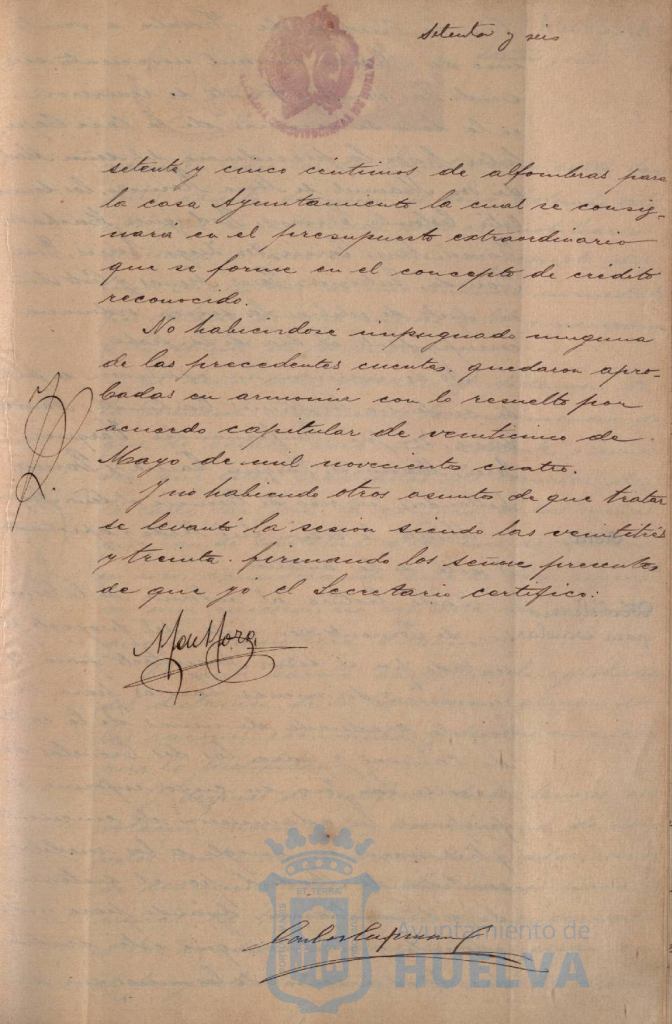 setenta y seis
setenta y cinco céntimos de alfombras para
la casa Ayuntamiento la cual se consig-
nará en el presupuesto extraordinario
que se forme en el concepto de crédito
reconocido.
No habiendose impugnado ninguna
de las precedentes cuentas. quedaron apro-
badas en armonia con lo resuelto por
acuerdo capitular de veinticinco de
Mayo de mil novecientos cuatro.
Y no habiendo otros asuntos de que tratar
se levantó la sesion siendo las veintitres
y treinta. firmando los señores presentes
de que yo el Secretario certifico:
ET TERRAE
Carlos
Ayuntamiento de
HUELVA